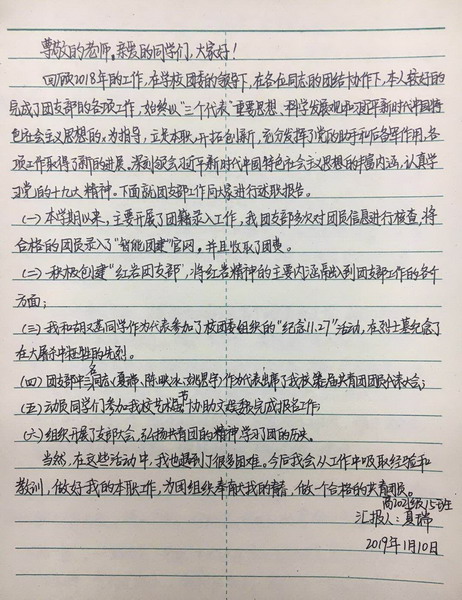 尊敬的老师，亲爱的同学们，大家好！
回顾2018年的工作，在学校团委的领导下，在各位同志的团结协作下，本人较好的
完成了团支部的各项工作，始终以“三个代表”重要思想、科学发展观和习近平新时代中国特
色社会主义思想的，为指导，立足本职，开拓创新，充分发挥了党的助手和后备军作用，各
项工作取得了新的进展，深刻领会习近平新时代中国特色社会主义思想的丰富内涵，认真学
习党的十九大精神。下面就团支部工作向大家进行述职报告。
（一）本学期以来，主要开展了团籍录入工作，我团支部多次对团员信息进行核查，将
合格的团员录入了“智能团建”官网，并且收取了团费。
（二）积极创建“红岩团支部”，将红岩精神的主要内涵融入到团支部工作的各个
方面；
（三）我和胡文昱同学作为代表参加了校团委组织的“纪念11.27”活动，在烈士墓纪念了
在大屠杀中牺牲的先烈。
（四）团支部中三名同志（夏瑞、陈映冰、姚思宇）作为代表出席了我校第届共青团团员代表大会；
（五）动员同学们参加我校艺术节，协助文娱委完成报名工作；
（六）组织开展了支部大会，弘扬共青团的精神，学习了团的历史。
当然，在这些活动中，我也遇到了很多困难。今后我会从工作中吸取经验和
教训，做好我的本职工作，为团组织奉献我的青春，做一个合格的共青团员。
高2021级15班
汇报人：夏瑞
2019年1月10日